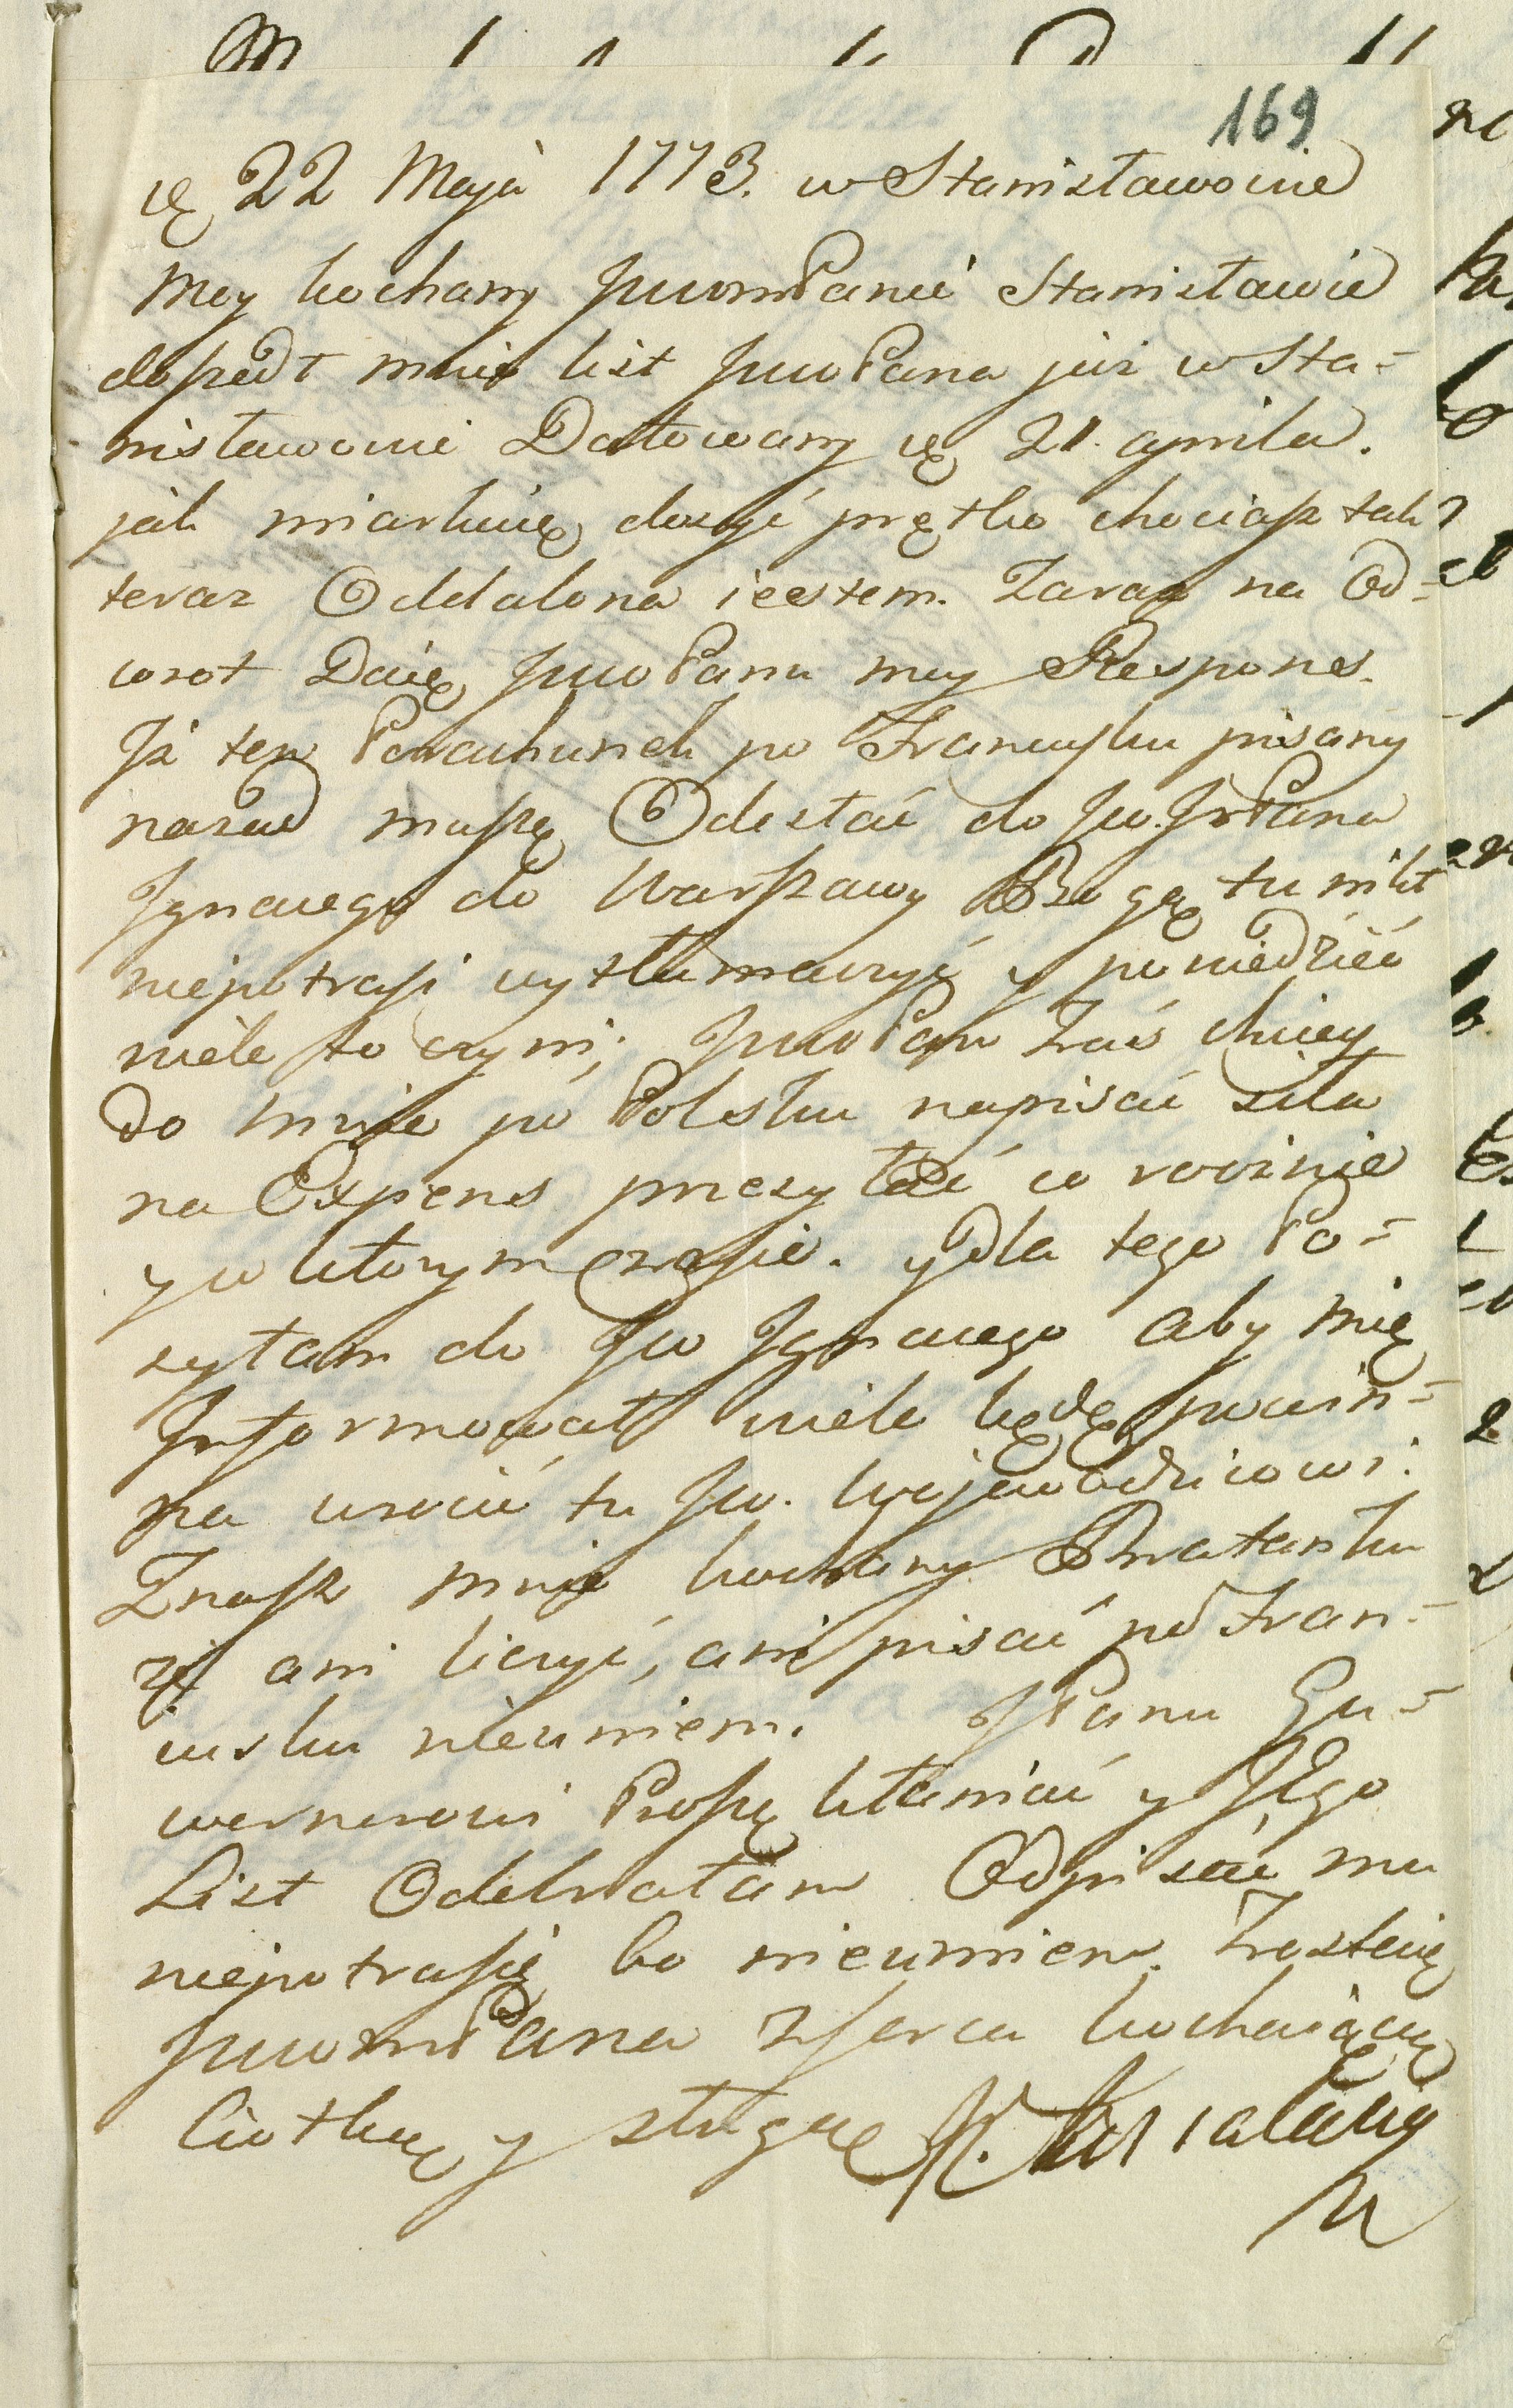 169
dę 22 Maja 1773. w Stanisławowie
Moy kochany JwomPanie Stanisławie
doszedł mnie list JwoPana już w Sta=
nisławowie Datowany dę 21. aprila.
jak miarkuię dosyć prętko chociasz tak
teraz Oddalona iestem. Zaraz na Od=
wrot Daię JwoPanu moy Respons.
Ja ten Porachunek po Francusku pisany
nazad muszę Odesłać do Jw. JmPana
Ignacego do Warszawy Bo go tu nikt
niepotrafi wytłumaczyć y powiedzieć
wiele to czyni; JwoPan Zaś chciey
Do mnie po Polsku napisać siła
na Expens przesyłać co rocznie
y w ktorym czasie. y Dla tego Po=
syłam do Jw Ignacego aby mię
Informował wiele będę powin=
na wrocić tu Jw. Wojewodzicowi.
Znasz mnie kochany Bratanku
że ani liczyć, ani pisać po Fran=
cusku nieumiem. JPanu Gu=
wernerowi Proszę kłaniać y Jego
List Odebrałam Odpisać mu
niepotrafię bo nieumiem. Zostaię
JwomPana z serca kochaiącą
Ciotką y sługą